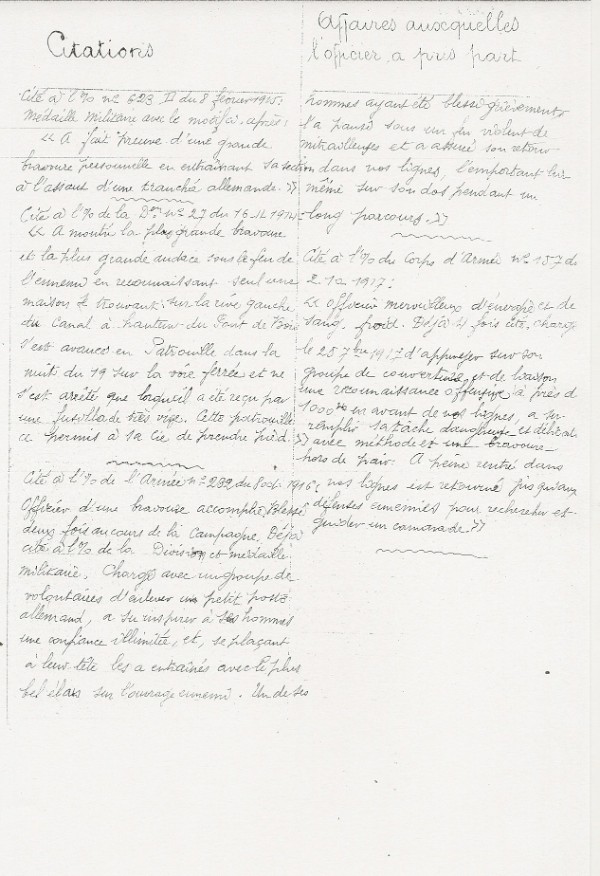 Citations
Cité à l'% n° 523 D du 8 février 1915:
Médaille Militaire avec le motif ci-après:
« A fait preuve d'une grande
bravoure personnelle en entraînant sa section
à l'assaut d'une tranché allemande. »
Cité à l'% de la Don n° 27 du 16-11-1914:
« A montré la plus grande bravoure
et la plus grande audace sous le feu de
l'ennemi en reconnaissant seul une
maison se trouvant sur la rive gauche
du Canal à hauteur du Pont de Bois
s'est avancé en Patrouille dans la
nuit du 19 sur la voie ferrée et ne
s'est arrêté que lorsqu'il a été reçu par
une fusillade très vive. Cette patrouille
a permis à sa Cie de prendre pied. »
Cité à l'% de l'Armée n° 292 du 8 oct. 1916:
Officier d'une bravoure accomplie, Blessé
deux fois au cours de la Campagne, Déjà
cité à l'% de la Division et médaillé
militaire. Chargé avec un groupe de
volontaires d'enlever un petit poste
allemand, a su inspirer à ses hommes
une confiance illimitée, et, se plaçant
à leur tête les a entraînés avec le plus
bel élan sur l'ouvrage ennemi. Un de ses
Affaires auxquelles
l'officier a pris part
hommes ayant été blessé grièvement
l'a pansé sous un feu violent de
mitrailleuses et a assuré son retour
dans nos lignes, l'emportant lui-
même sur son dos pendant un
long parcours. »
Cité à l'% du Corps d'Armée n° 157 du
2-10-1917:
« Officier merveilleux d'énergie et de
sang froid. Déjà 4 fois cité, chargé
le 25 7bre 1917 d'appuyer sur son
groupe de couverture et de liaison
une reconnaissance offensive à près de
1000m en avant de nos lignes, a su
remplir sa tâche dangereuse et délicate
avec méthode et une bravoure
hors de pair. A peine rentré dans
nos lignes est retourné jusqu'aux
défenses ennemies pour rechercher et
guider un camarade. »